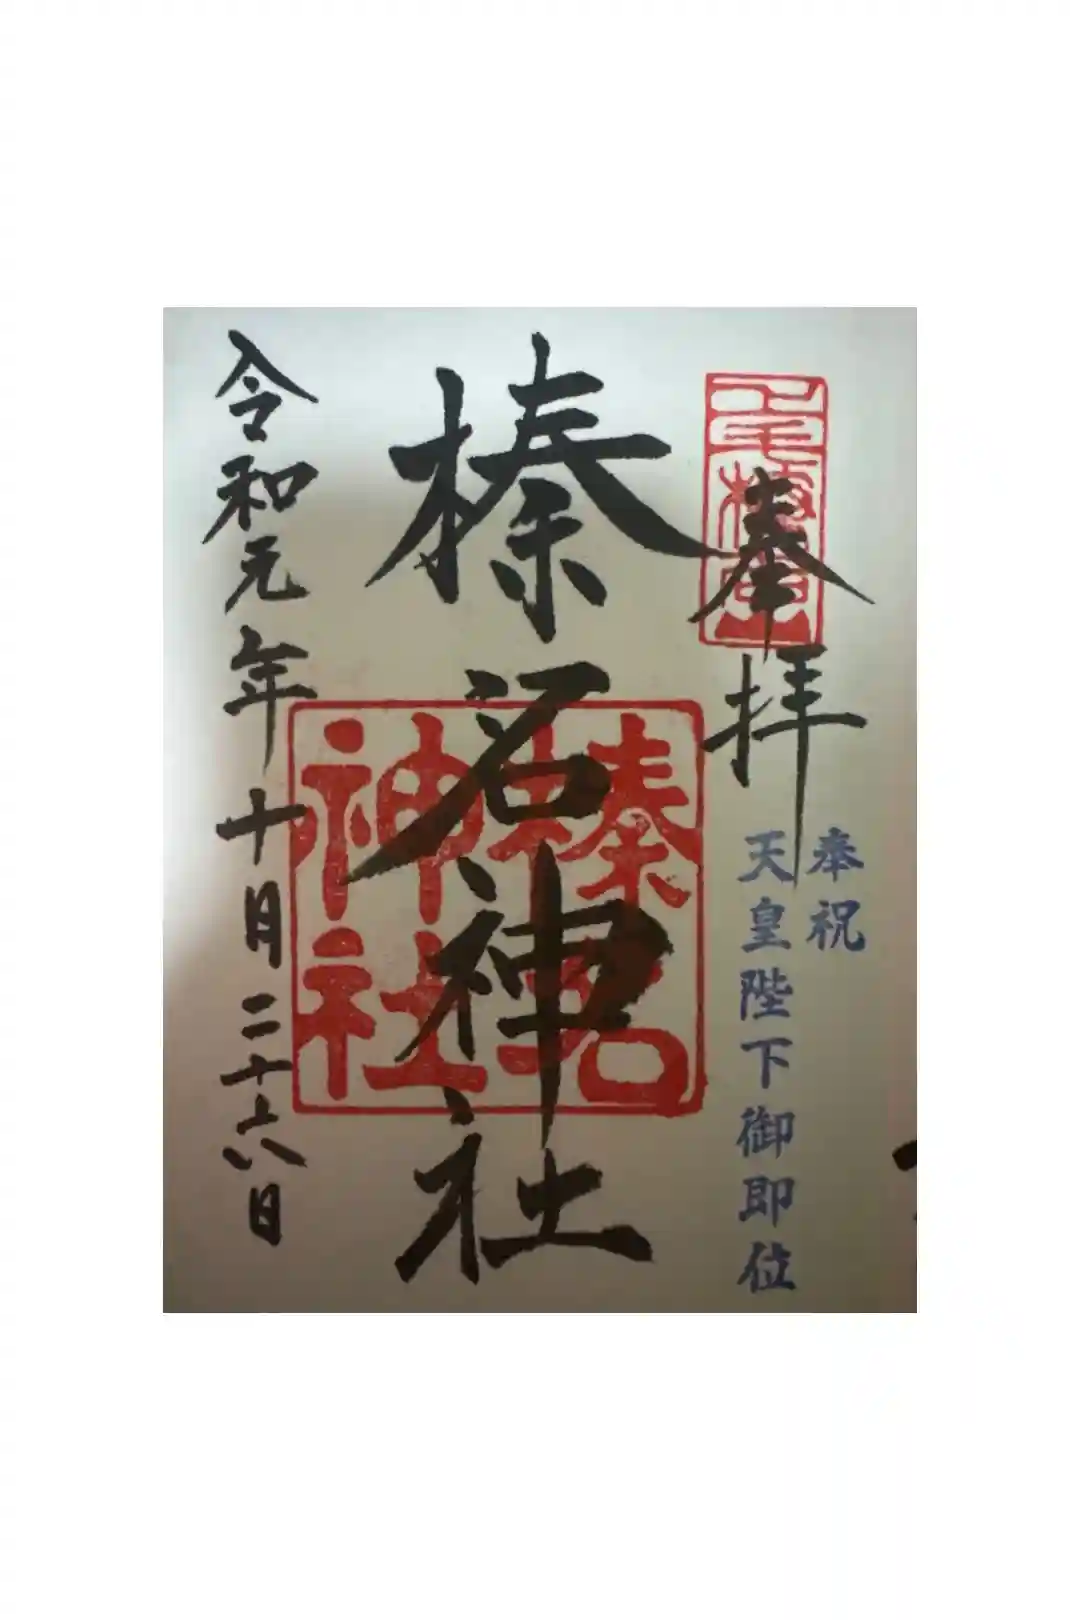 奉拝
奉祝
天皇陛下御即位
榛名神社
榛名
神社
令和元年十月二十六日